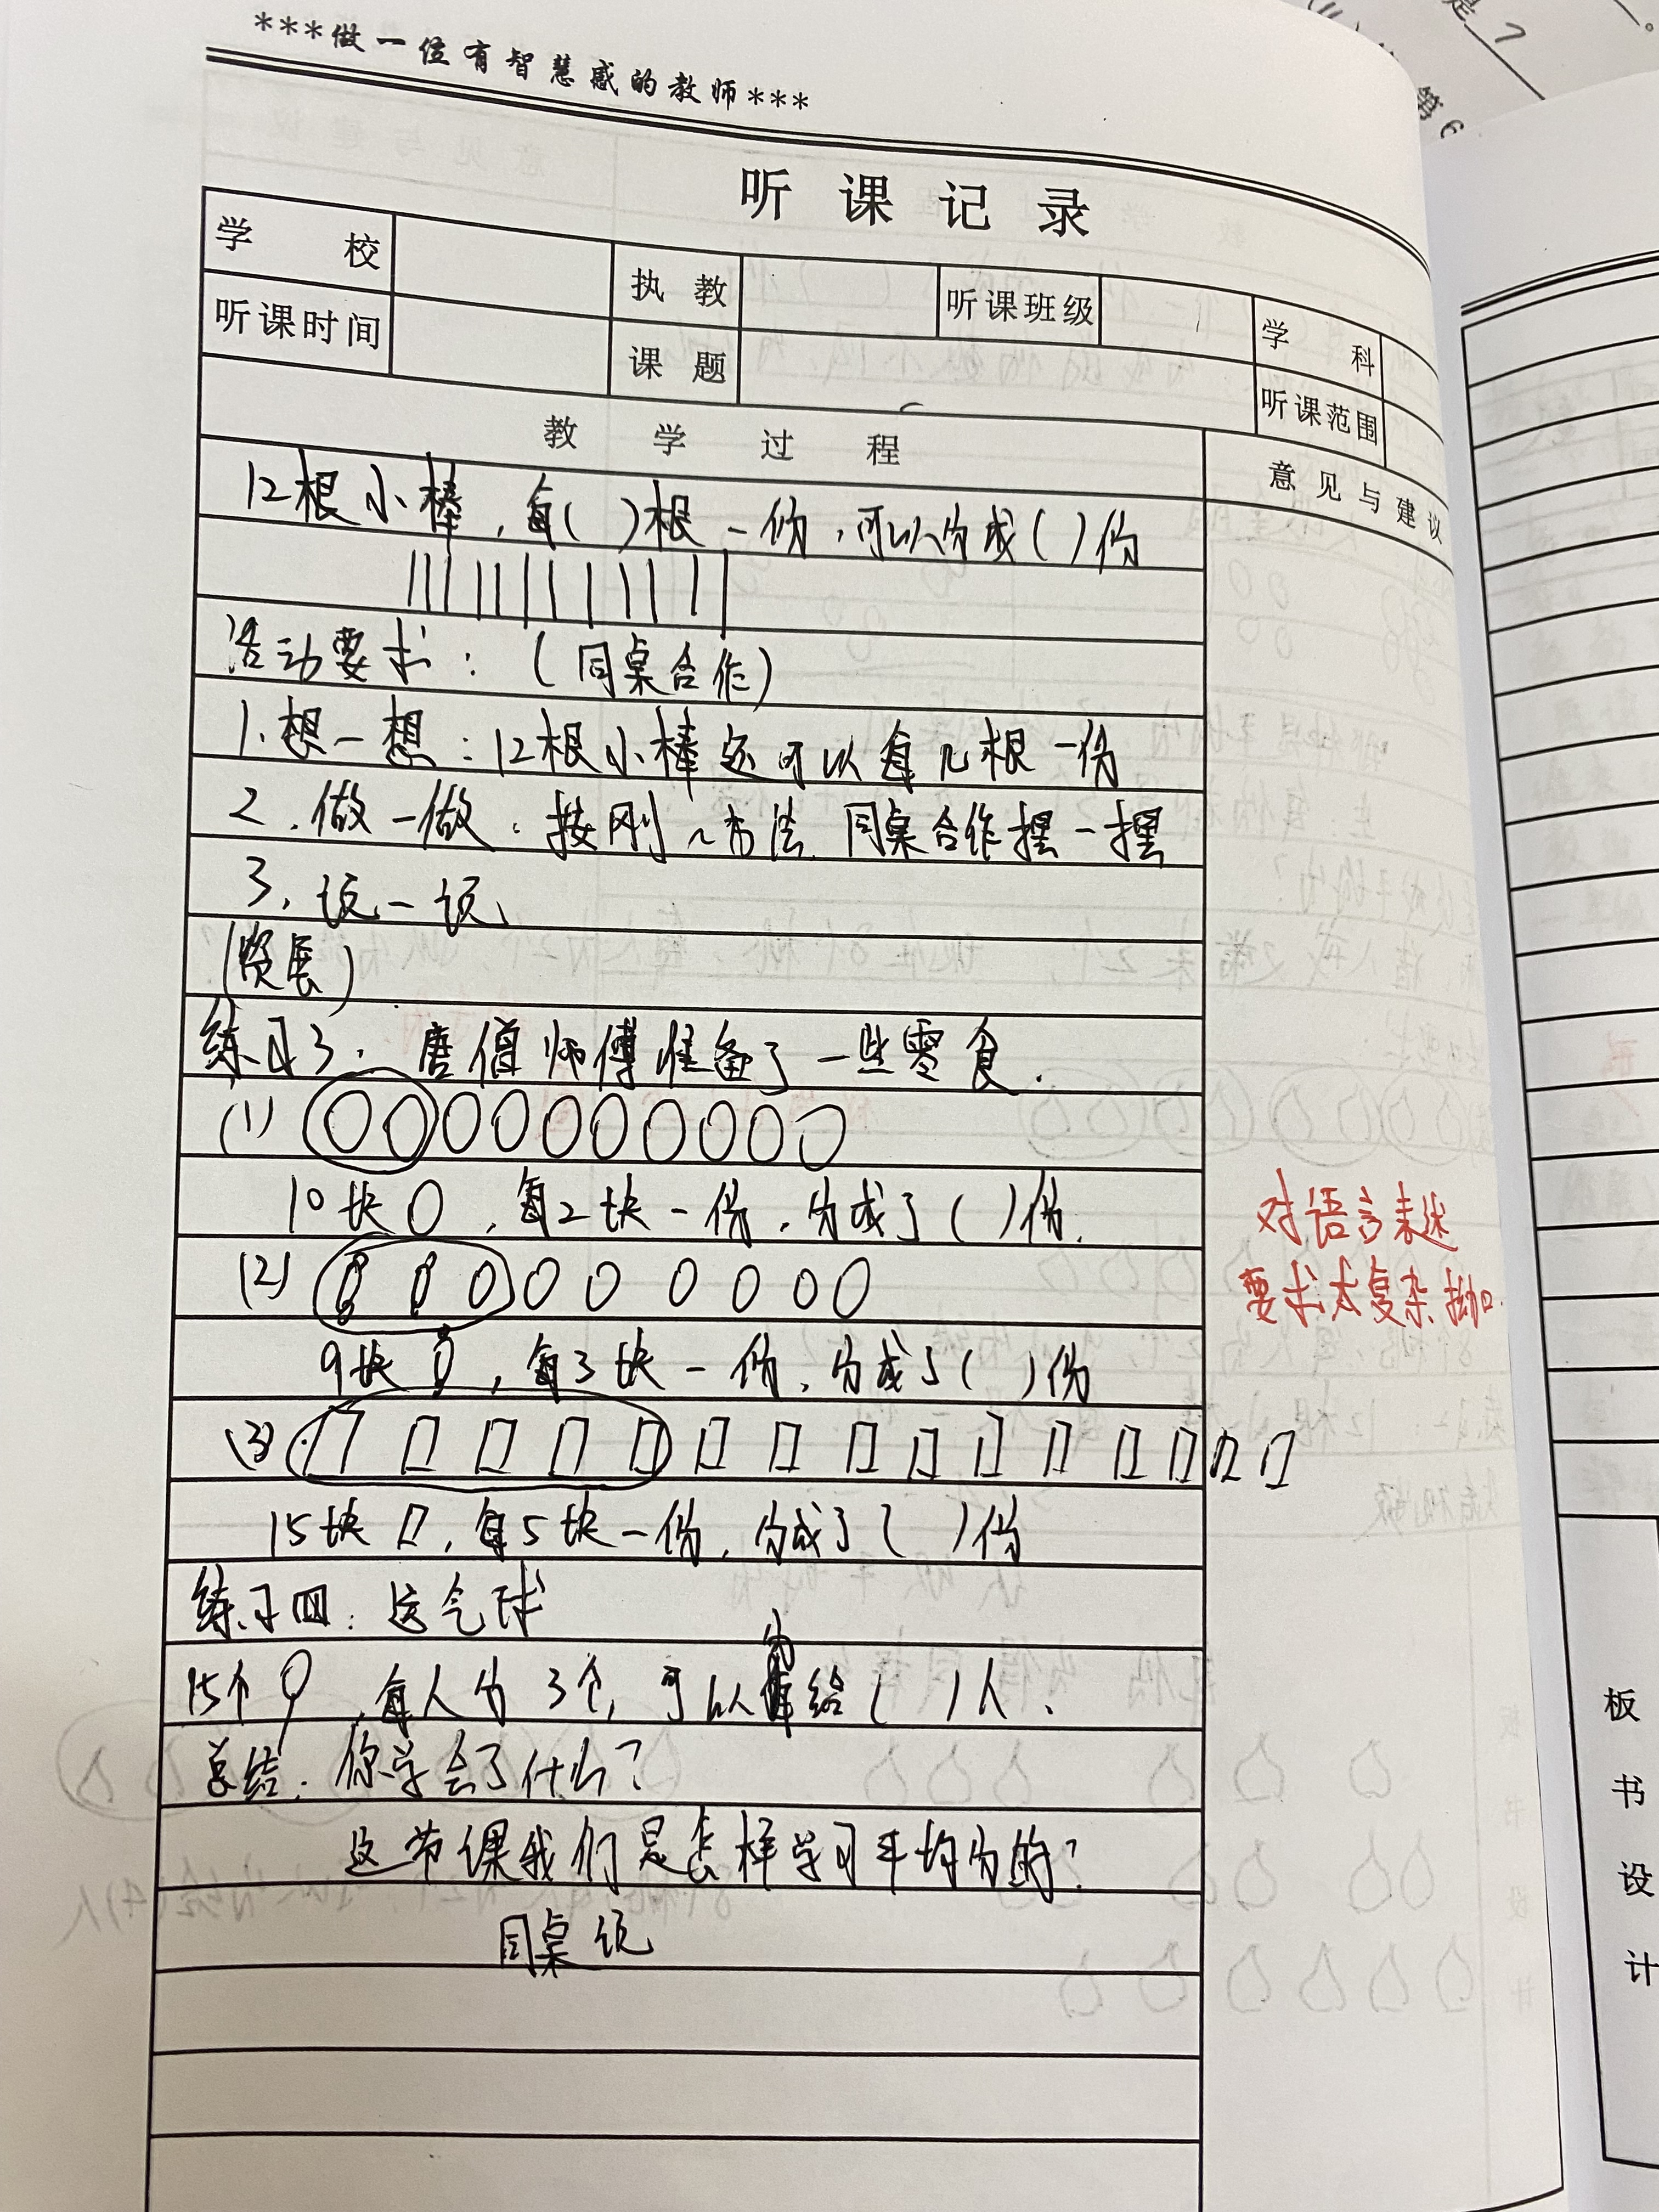 ***做一位有智慧感的教师***
听课记录
学校
执教
听课班级
学科
听课时间
课题
听课范围
教学过程
意见与建议
12根小棒，每( )根一份，可以分成( )份
活动要求：(同桌合作)
1.想一想：12根小棒还可以每几根一份
2.做一做：按刚才方法 同桌合作摆一摆
3.说一说
练习3：唐僧师傅准备了一些零食.
(1)
10块 ，每2块一份，分成了( )份.
对语言表述
(2)
要求太复杂拗口.
9块 ，每3块一份，分成了( )份
(3)
15块 ，每5块一份，分成了( )份
练习四：运气球
15个 ，每人分3个，可以分给( )人.
总结：你学会了什么？
这节课我们是怎样学习平均分的？
同桌说
板书设计